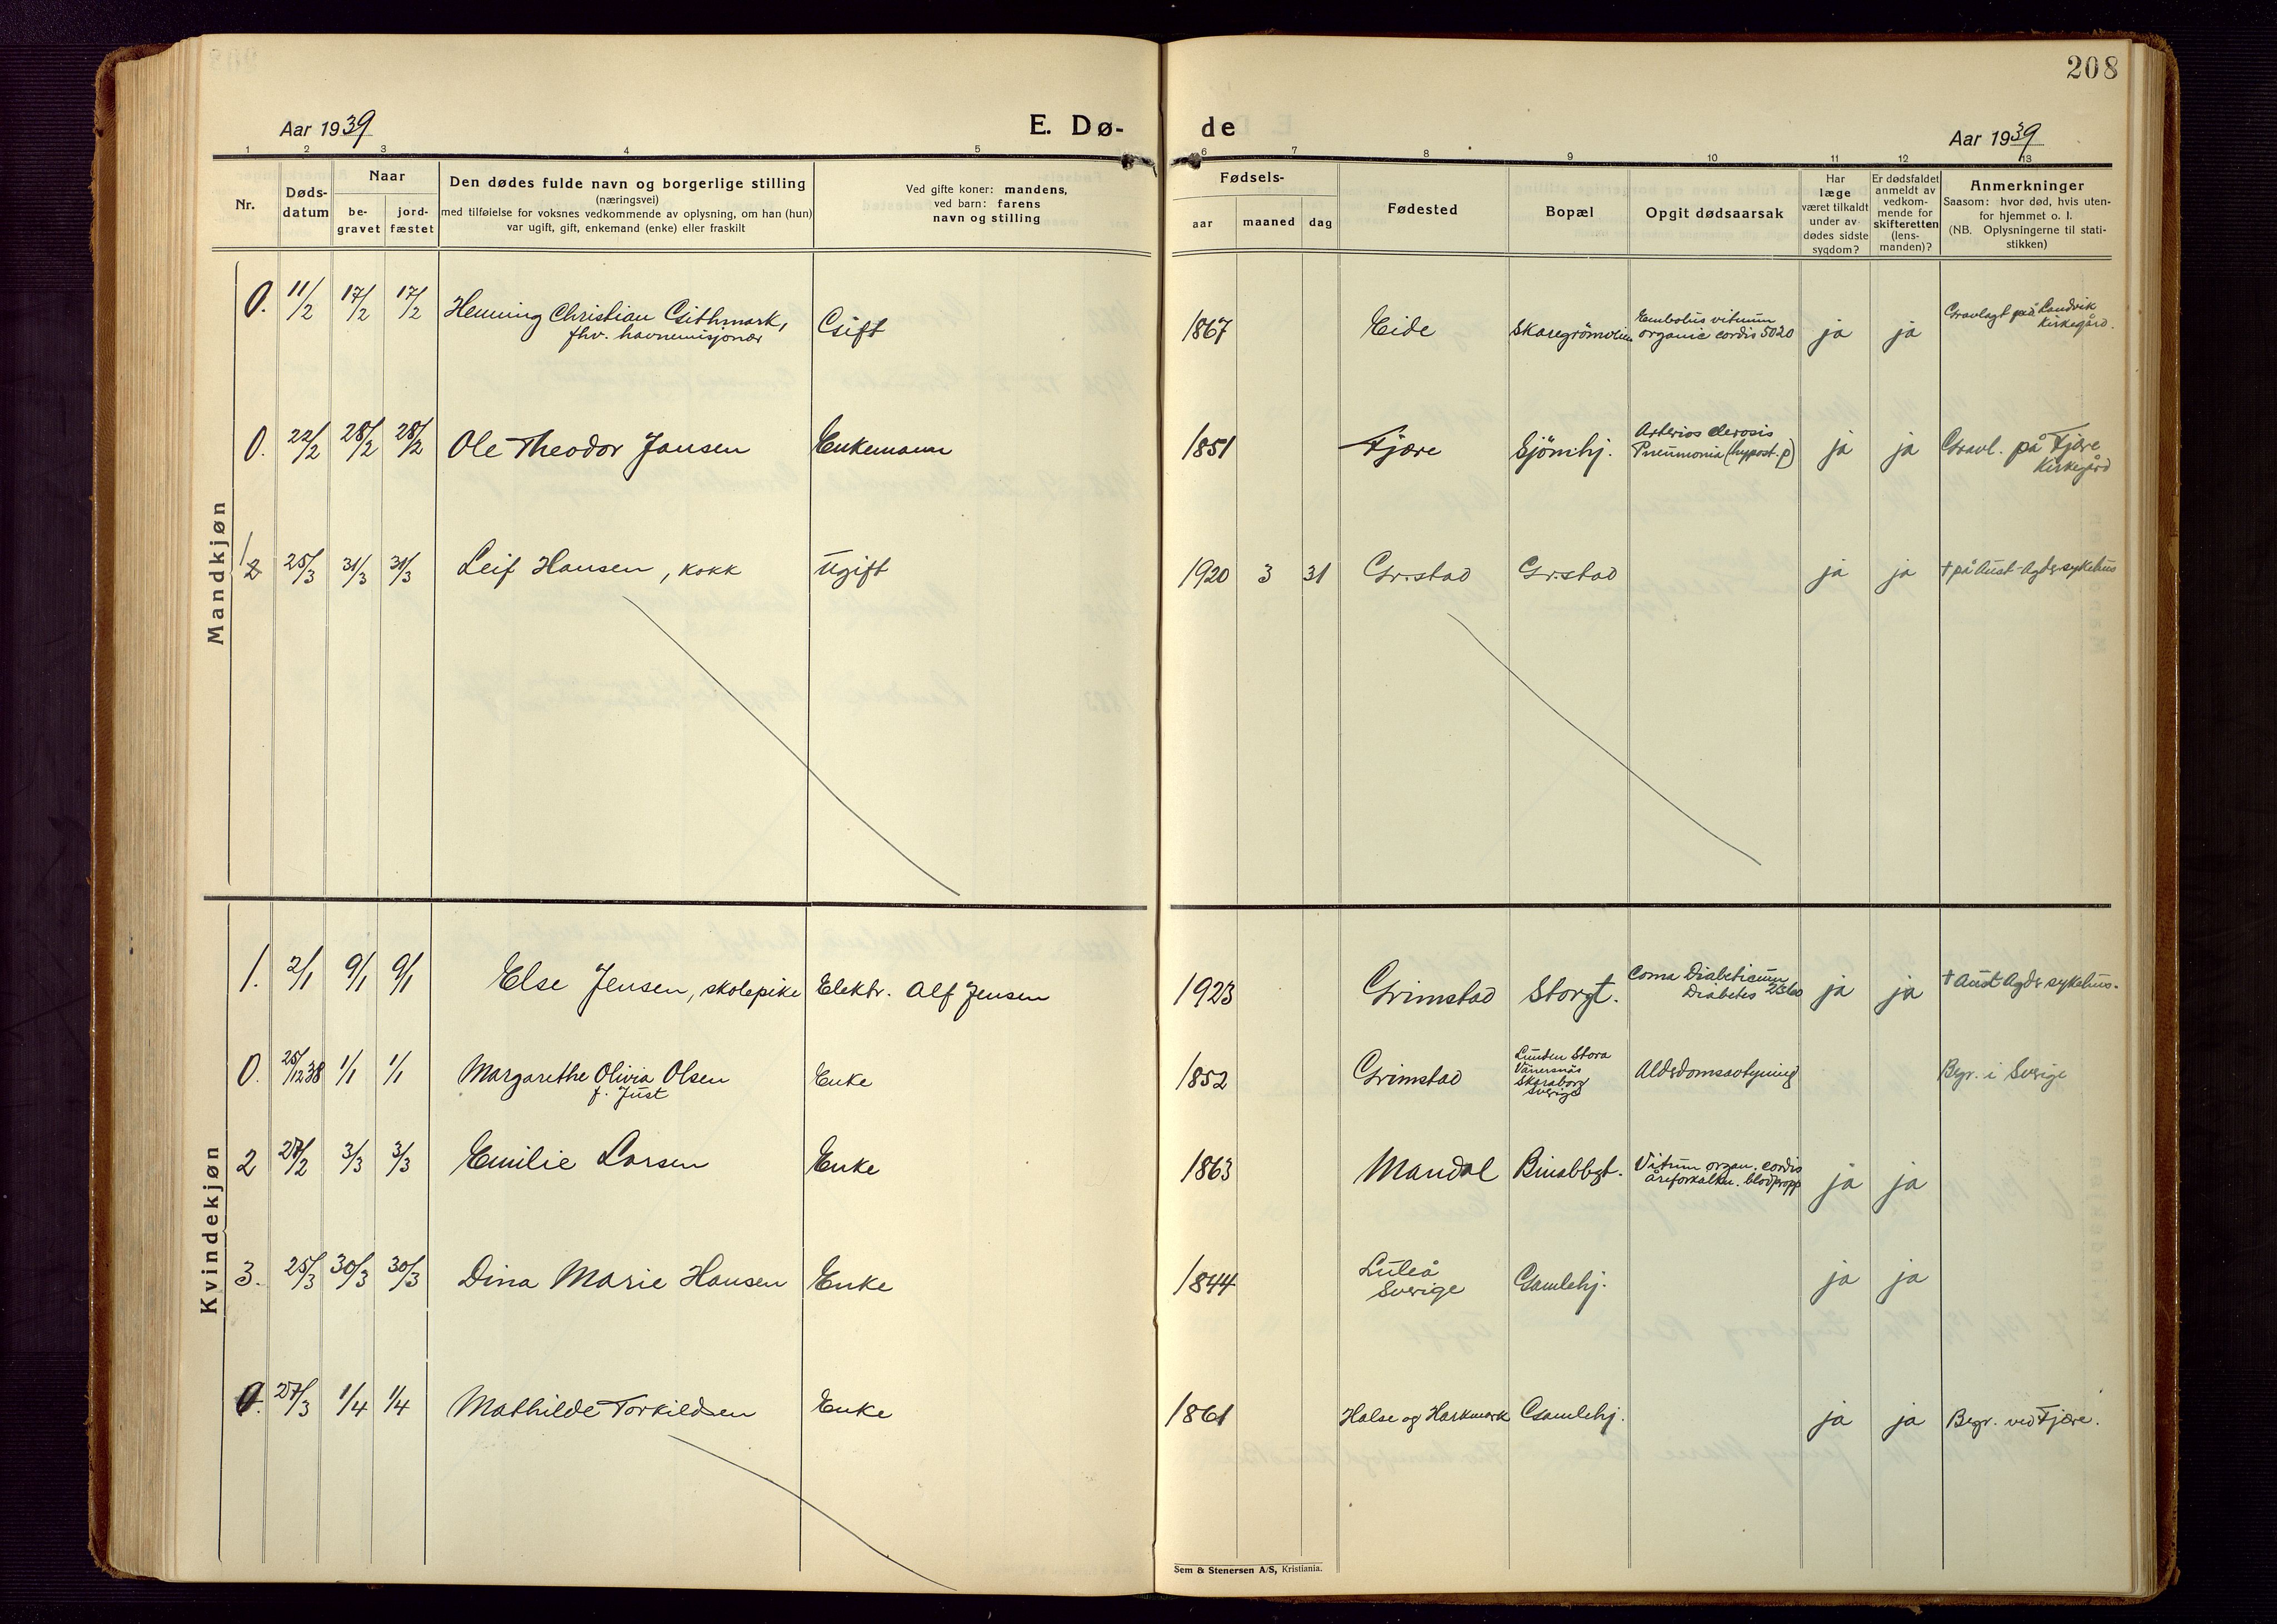 208
Aar 1939
E. Dø-
de
Aar 1939
1 2 3 4 5 6 7 8 9 10 11 12 13
Nr.
Døds-
datum
Naar
be-
gravet
jord-
fæstet
Den dødes fulde navn og borgerlige stilling
(næringsvei)
med tilføielse for voksnes vedkommende av oplysning, om han (hun)
var ugift, gift, enkemand (enke) eller fraskilt
Ved gifte koner: mandens,
ved barn: farens
navn og stilling
Fødsels-
aar maaned dag
Fødested
Bopæl
Opgit dødsaarsak
Har
læge
været tilkaldt
under av-
dødes sidste
sygdom?
Er dødsfaldet
anmeldt av
vedkom-
mende for
skifteretten
(lens-
manden)?
Anmerkninger
Saasom: hvor død, hvis uten-
for hjemmet o. l.
(NB. Oplysningerne til stati-
stikken)
Mandkjøn
0. 11/2 17/2 17/2 Henning Christian Githmark,
fhv. havnemisjonær
Gift
1867 Eide
Embolus vitium
organic cordis 5020
ja ja
Gravlagt på Landvik
Kirkegård.
0. 22/2 28/2 28/2 Ole Theodor Jansen Enkemann 1851 Fjære Sjömhj.
Pneumonia (hypost. p)
ja ja
Gravl. på Fjære
Kirkegård
2 25/3 31/3 31/3 Leif Hansen, kokk Ugift 1920 3 31 Gr.stad Gr.stad ja ja † på Aust-Agder sykehus
Kvindekjøn
1. 2/1 9/1 9/1 Else Jensen, skolepike Elektr. Alf Jensen 1923 Grimstad Storgt.
Coma Diabeticum
Diabetes 2360
ja ja † Aust Agder sykehus.
0. 25/12 38 1/1 1/1 Margarethe Olivia Olsen
f. Just
Enke 1852 Grimstad
Lunden Stora
Vänersnäs
Skaraborg
Sverige
Aldersdomsavtyning
Begr. i Sverige
2 27/2 3/3 3/3 Emilie Larsen Enke 1863 Mandal Binabbgt.
Vitium organ. cordis
åreforkalkn. blodpropp
ja ja
3. 25/3 30/3 30/3 Dina Marie Hansen Enke 1844
Luleå
Sverige
Gamlehj. ja ja
0. 27/3 1/4 1/4 Mathilde Torkildsen Enke 1861 Halse og Harkmark Gamlehj. ja ja Begr. ved Fjære.
Sem & Stenersen A/S, Kristiania.